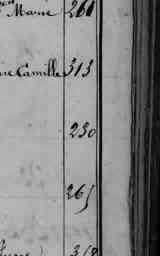 Marie 261
Camille 313
230
265
318